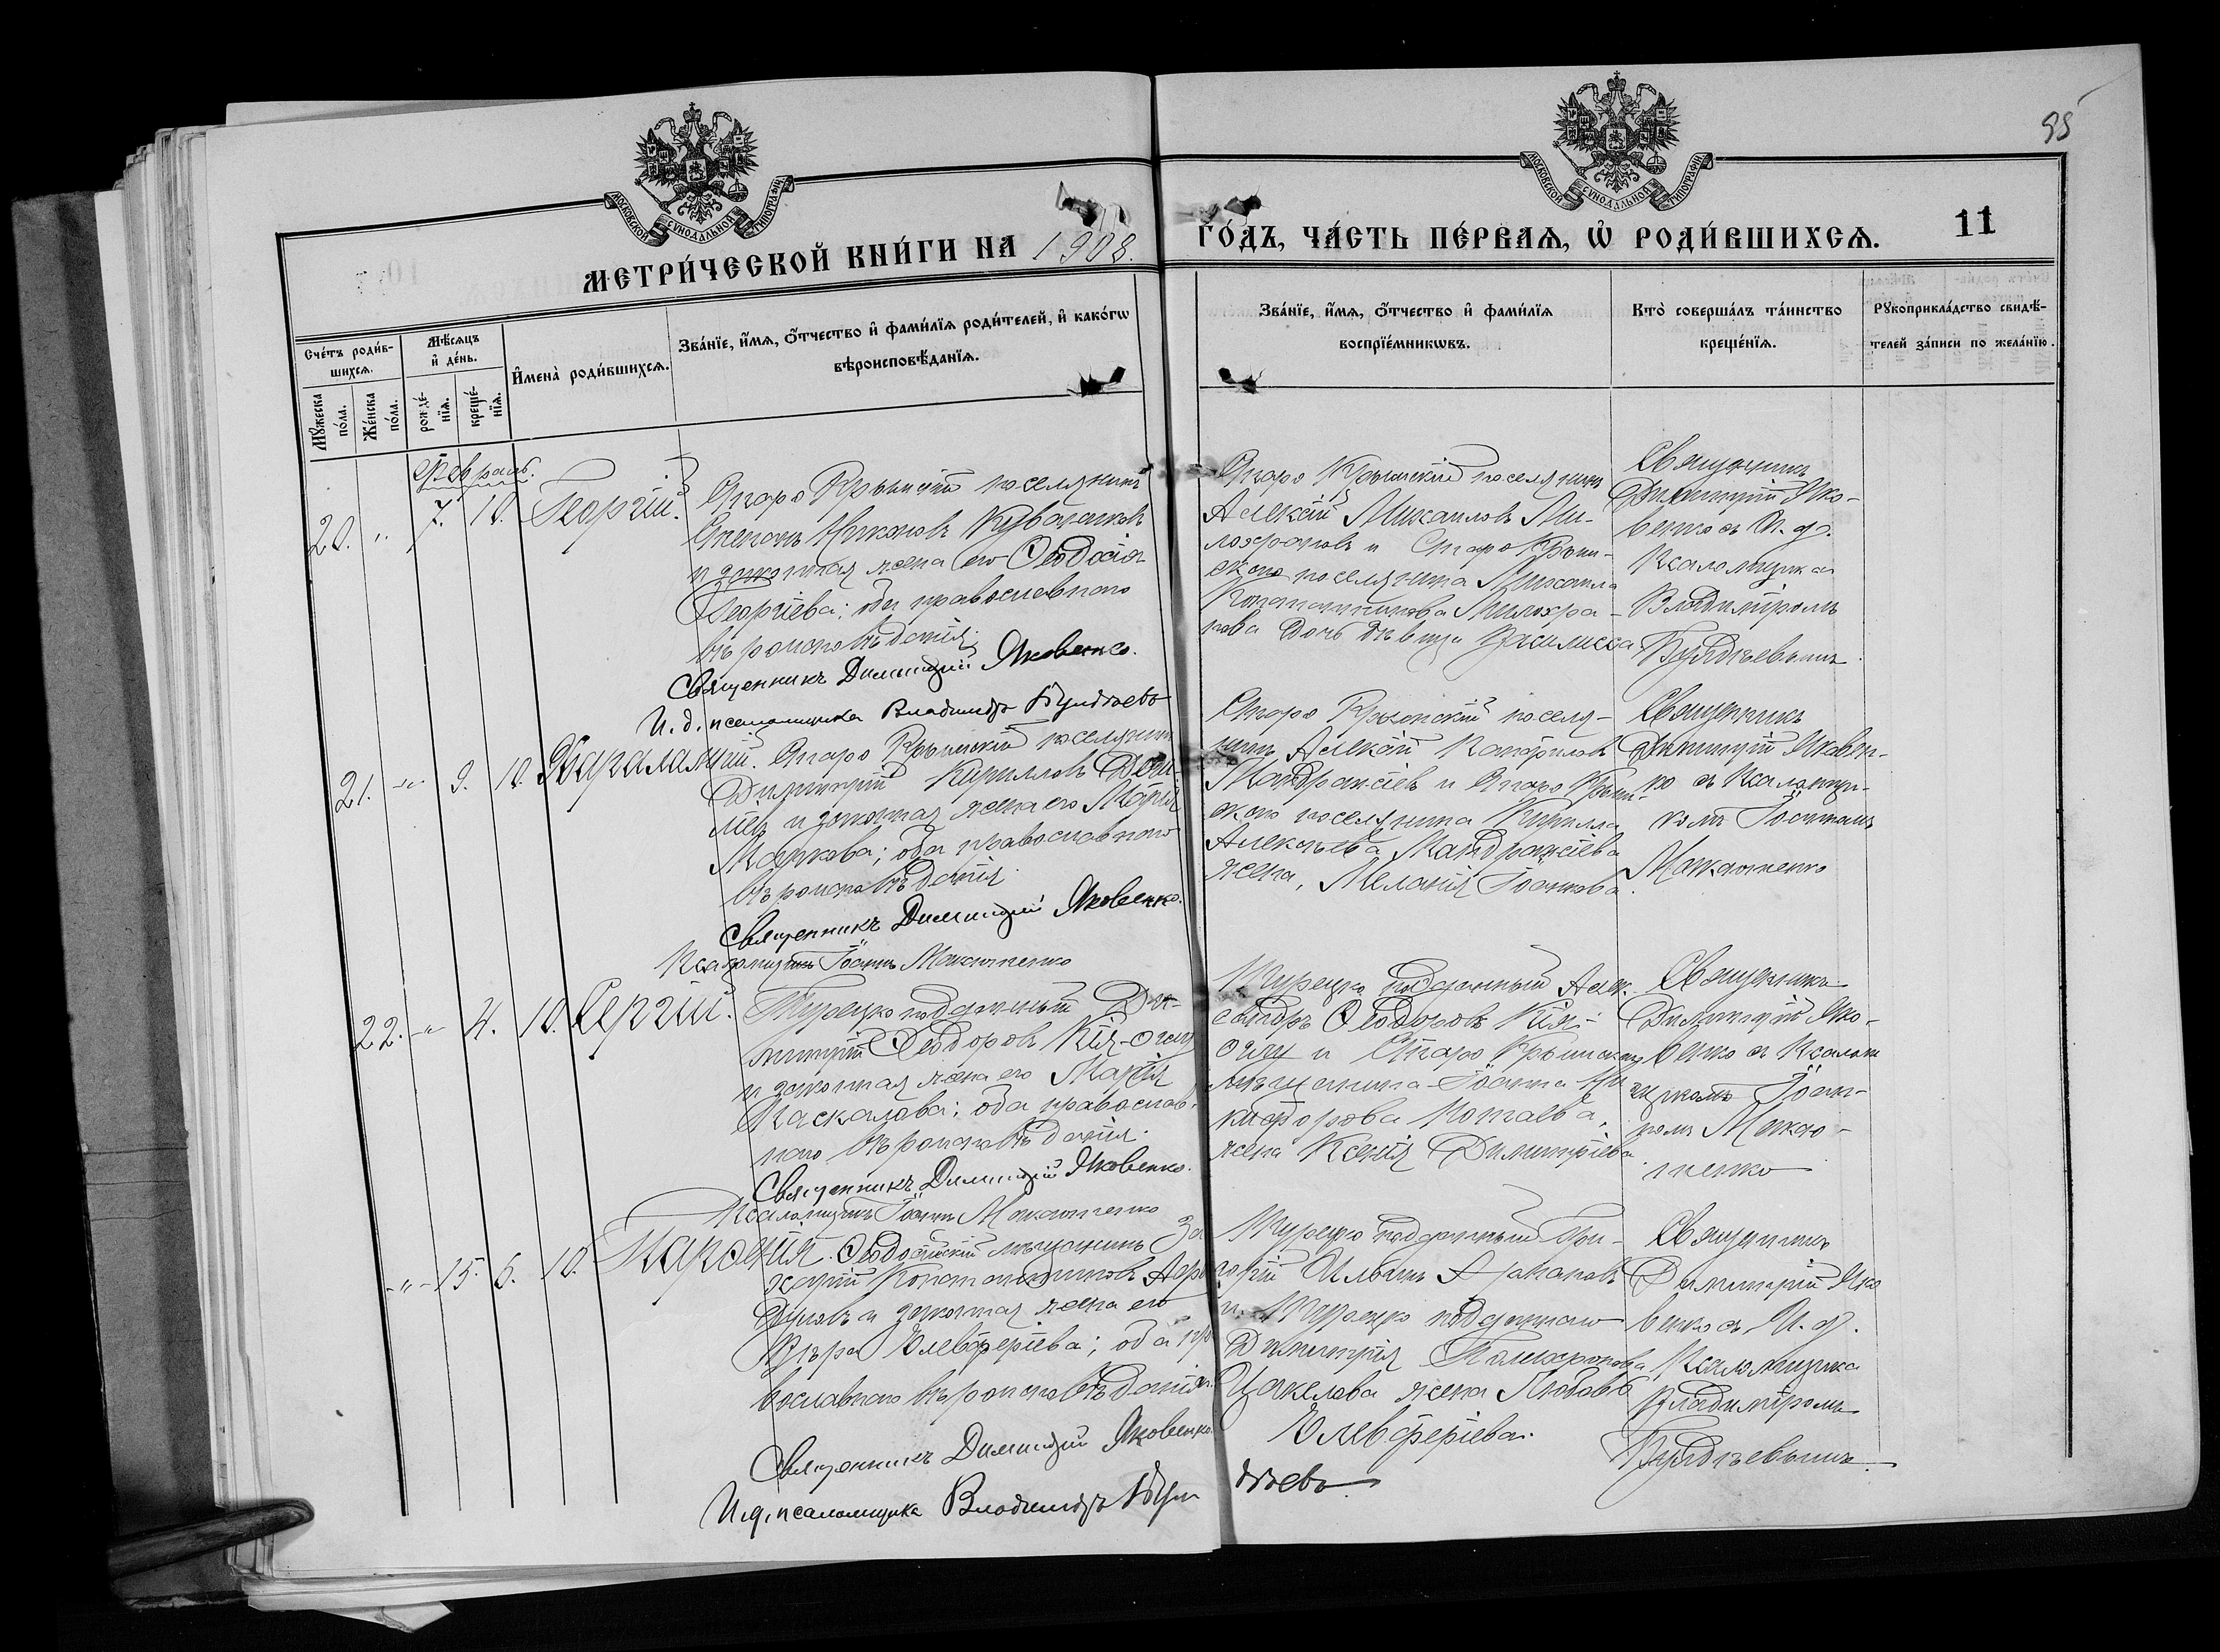 95
МОСКОВСКОЙ СѴНОДАЛЬНОЙ ТИПОГРАФІИ
МОСКОВСКОЙ СѴНОДАЛЬНОЙ ТИПОГРАФІИ
МЕТРИ́ЧЕСКОЙ КНИ́ГИ НА 1908.
ГО́ДЪ, ЧА́СТЬ ПЕ́РВАЯ, Ѡ҆ РОДИ́ВШИХСЯ.
11
Сче́тъ роди́в-
шихся.
Мꙋ́жеска
по́ла.
Же́нска
по́ла.
Мѣ́сяцъ
и҆ де́нь.
рожде́-
нїя.
креще́-
нїя.
И҆мена̀ роди́вшихся.
Зва́нїе, и҆́мя, ѻ҆́тчество и҆ фами́лїя роди́телей, и҆ како́гѡ
вѣроисповѣ́данїя.
Зва́нїе, и҆́мя, ѻ҆́тчество и҆ фами́лїя
воспрїе́мникѡвъ.
Кто̀ соверша́лъ та́инство
креще́нїя.
Рꙋкоприкла́дство свидѣ́-
телей за́писи по жела́нїю.
Февраль.
20. " 7. 10. Георгій.
Старо Крымскій поселянинъ
Степанъ Никоновъ
и законная жена его Ѳеодосія
Георгіева; оба православнаго
вѣроисповѣданія.
Священникъ Димитрій Яковенко.
И. д. псаломщика Владиміръ Булдѣевъ
Старо Крымскій поселянинъ
Алексій Михаиловъ Ми-
лохрановъ и Старо Крым-
скаго поселянина Михаила
Константинова Милохра-
нова дочь дѣвица Василисса
Священникъ
Димитрій Яко-
венко съ И. д.
Псаломщика
Владиміромъ
Булдѣевымъ.
21. " 9. 10. Харалампій.
Старо Крымскій поселянинъ
Димитрій Кирилловъ
и законная жена его Марія
Маркова; оба православнаго
вѣроисповѣданія.
Священникъ Димитрій Яковенко.
Псаломщикъ Іоаннъ Макаченко
Старо Крымскій поселя-
нинъ Алексій
Мандражіевъ и Старо Крым-
скаго поселянина Кирилла
Алексѣева Мандражіева
жена, Меланія Іоаннова.
Священникъ
Димитрій Яковен-
ко съ Псаломщи-
комъ Іоанномъ
22. " 4. 10. Сергій.
Турецко подданный Ди-
митрій Ѳеодоровъ Кія-оглу
и законная жена его Марія
Паскалова; оба православ-
наго вѣроисповѣданія.
Священникъ Димитрій Яковенко.
Псаломщикъ Іоаннъ
Турецко подданный Алек-
сандръ Ѳеодоровъ Кія-
оглу и Старо Крымскаго
мѣщанина Іоанна Ни-
кифорова
жена Ксенія Димитріева
Священникъ
Димитрій Яко-
венко съ Псалом-
щикомъ Іоан-
номъ
" 15. 6. 10. Парѳенія.
Ѳеодосійскій мѣщанинъ За-
харій Константиновъ
и законная жена его
Вѣра Елевферіева; оба пра-
вославнаго вѣроисповѣданія.
Священникъ Димитрій Яковенко.
И. д. псаломщика Владиміръ Бул
дѣевъ.
Турецко подданный Гри-
горій Ильинъ
и Турецко подданнаго
Димитрія Полихронова
жена Любовь
Елевферіева.
Священникъ
Димитрій Яко
венко съ И. д.
Псаломщика
Владиміромъ
Булдѣевымъ.